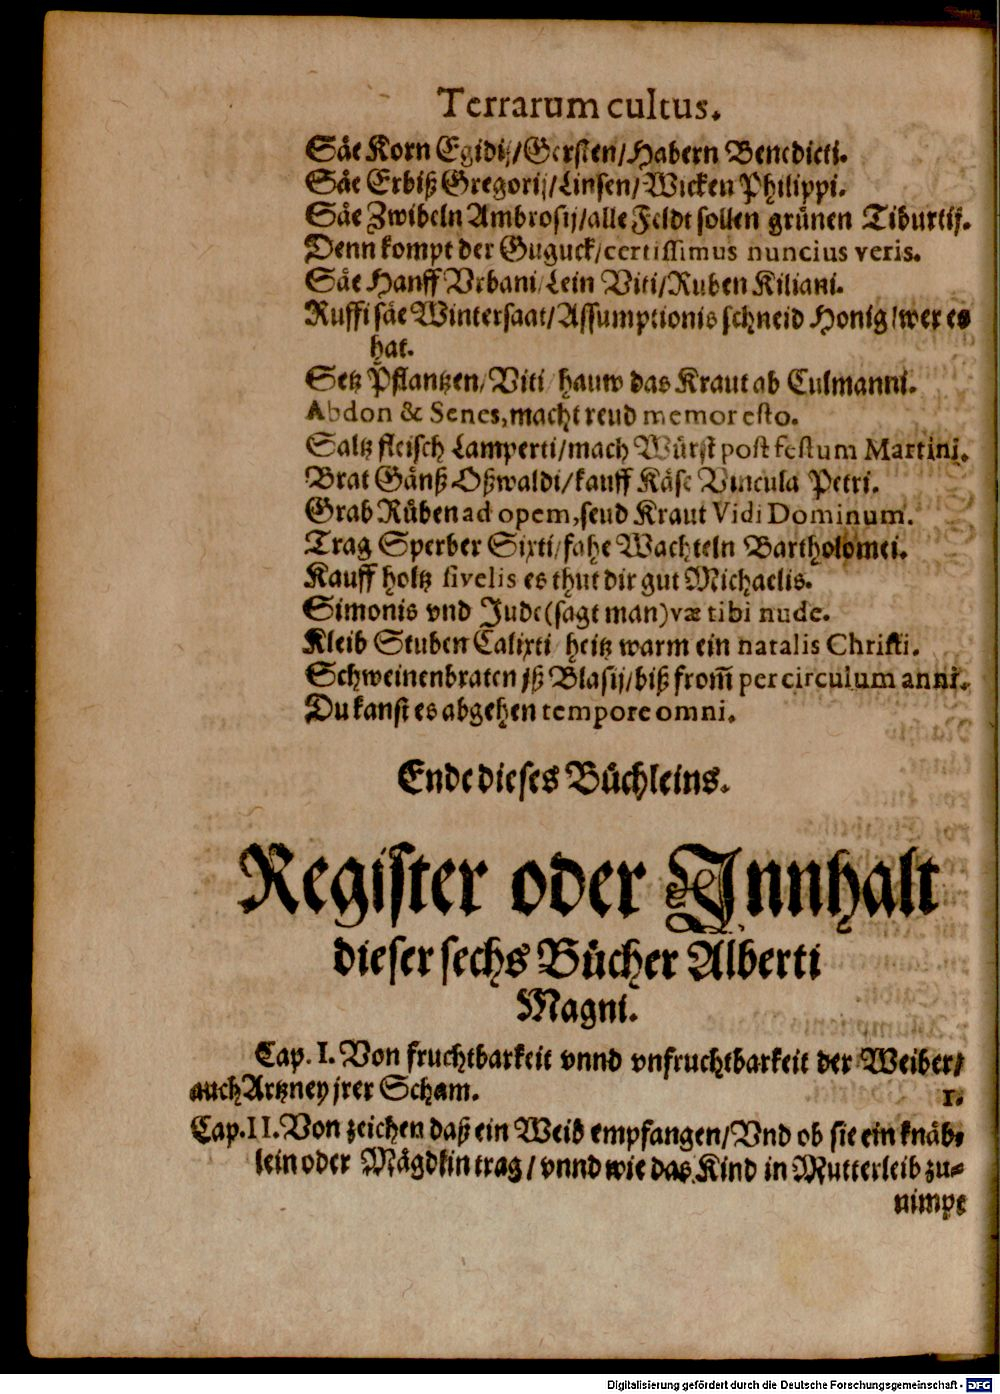 Terrarum cultus.
Säe Korn Egidij/Gersten/Habern Benedicti.
Säe Erbiß Gregorij/Linsen/Wicken Philippi.
Säe Zwibeln Ambrosij/alle Feldt sollen grünen Tiburtij.
Denn kompt der Guguck/certissimus nuncius veris.
Säe Hanff Vrbani/Lein Viti/Ruben Kiliani.
Ruffi säe Wintersaat/Assumptionis schneid Honig/wer es
hat.
Setz Pflantzen/Viti/hauw das Kraut ab Culmanni.
Abdon & Senes, macht reud memor esto.
Saltz fleisch Lamperti/mach Würst post festum Martini.
Brat Gänß Oßwaldi/kauff Käse Vincula Petri.
Grab Rüben ad opem, seud Kraut Vidi Dominum.
Trag Sperber Sixti/fahe Wachteln Bartholomei.
Kauff holtz si velis es thut dir gut Michaelis.
Simonis vnd Jude (sagt man) væ tibi nude.
Kleib Stuben Calixti/heitz warm ein natalis Christi.
Schweinenbraten jß Blasij/biß from̃ per circulum anni.
Du kanst es abgehen tempore omni.
Ende dieses Büchleins.
Register oder Innhalt
dieser sechs Bücher Alberti
Magni.
Cap. I. Von fruchtbarkeit vnnd vnfruchtbarkeit der Weiber/
auch Artzney jrer Scham. 1.
Cap. II. Von zeichen daß ein Weib empfangen/Vnd ob sie ein knäb-
lein oder Mägdlin trag/vnnd wie das Kind in Mutterleib zu-
nimpt
Digitalisierung gefördert durch die Deutsche Forschungsgemeinschaft - DFG